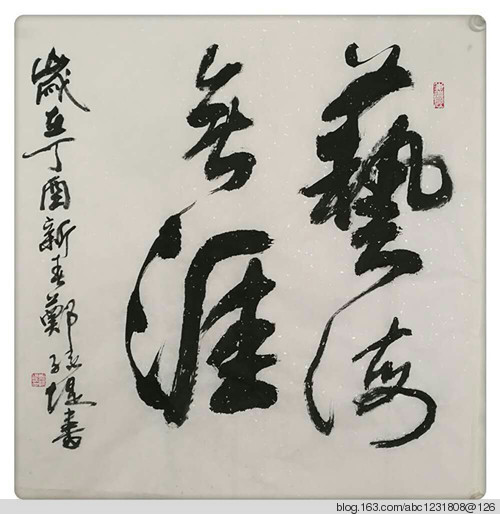 藝海
無涯
歲在丁酉新春鄭
堤書
blog.163.com/abc1231808@126